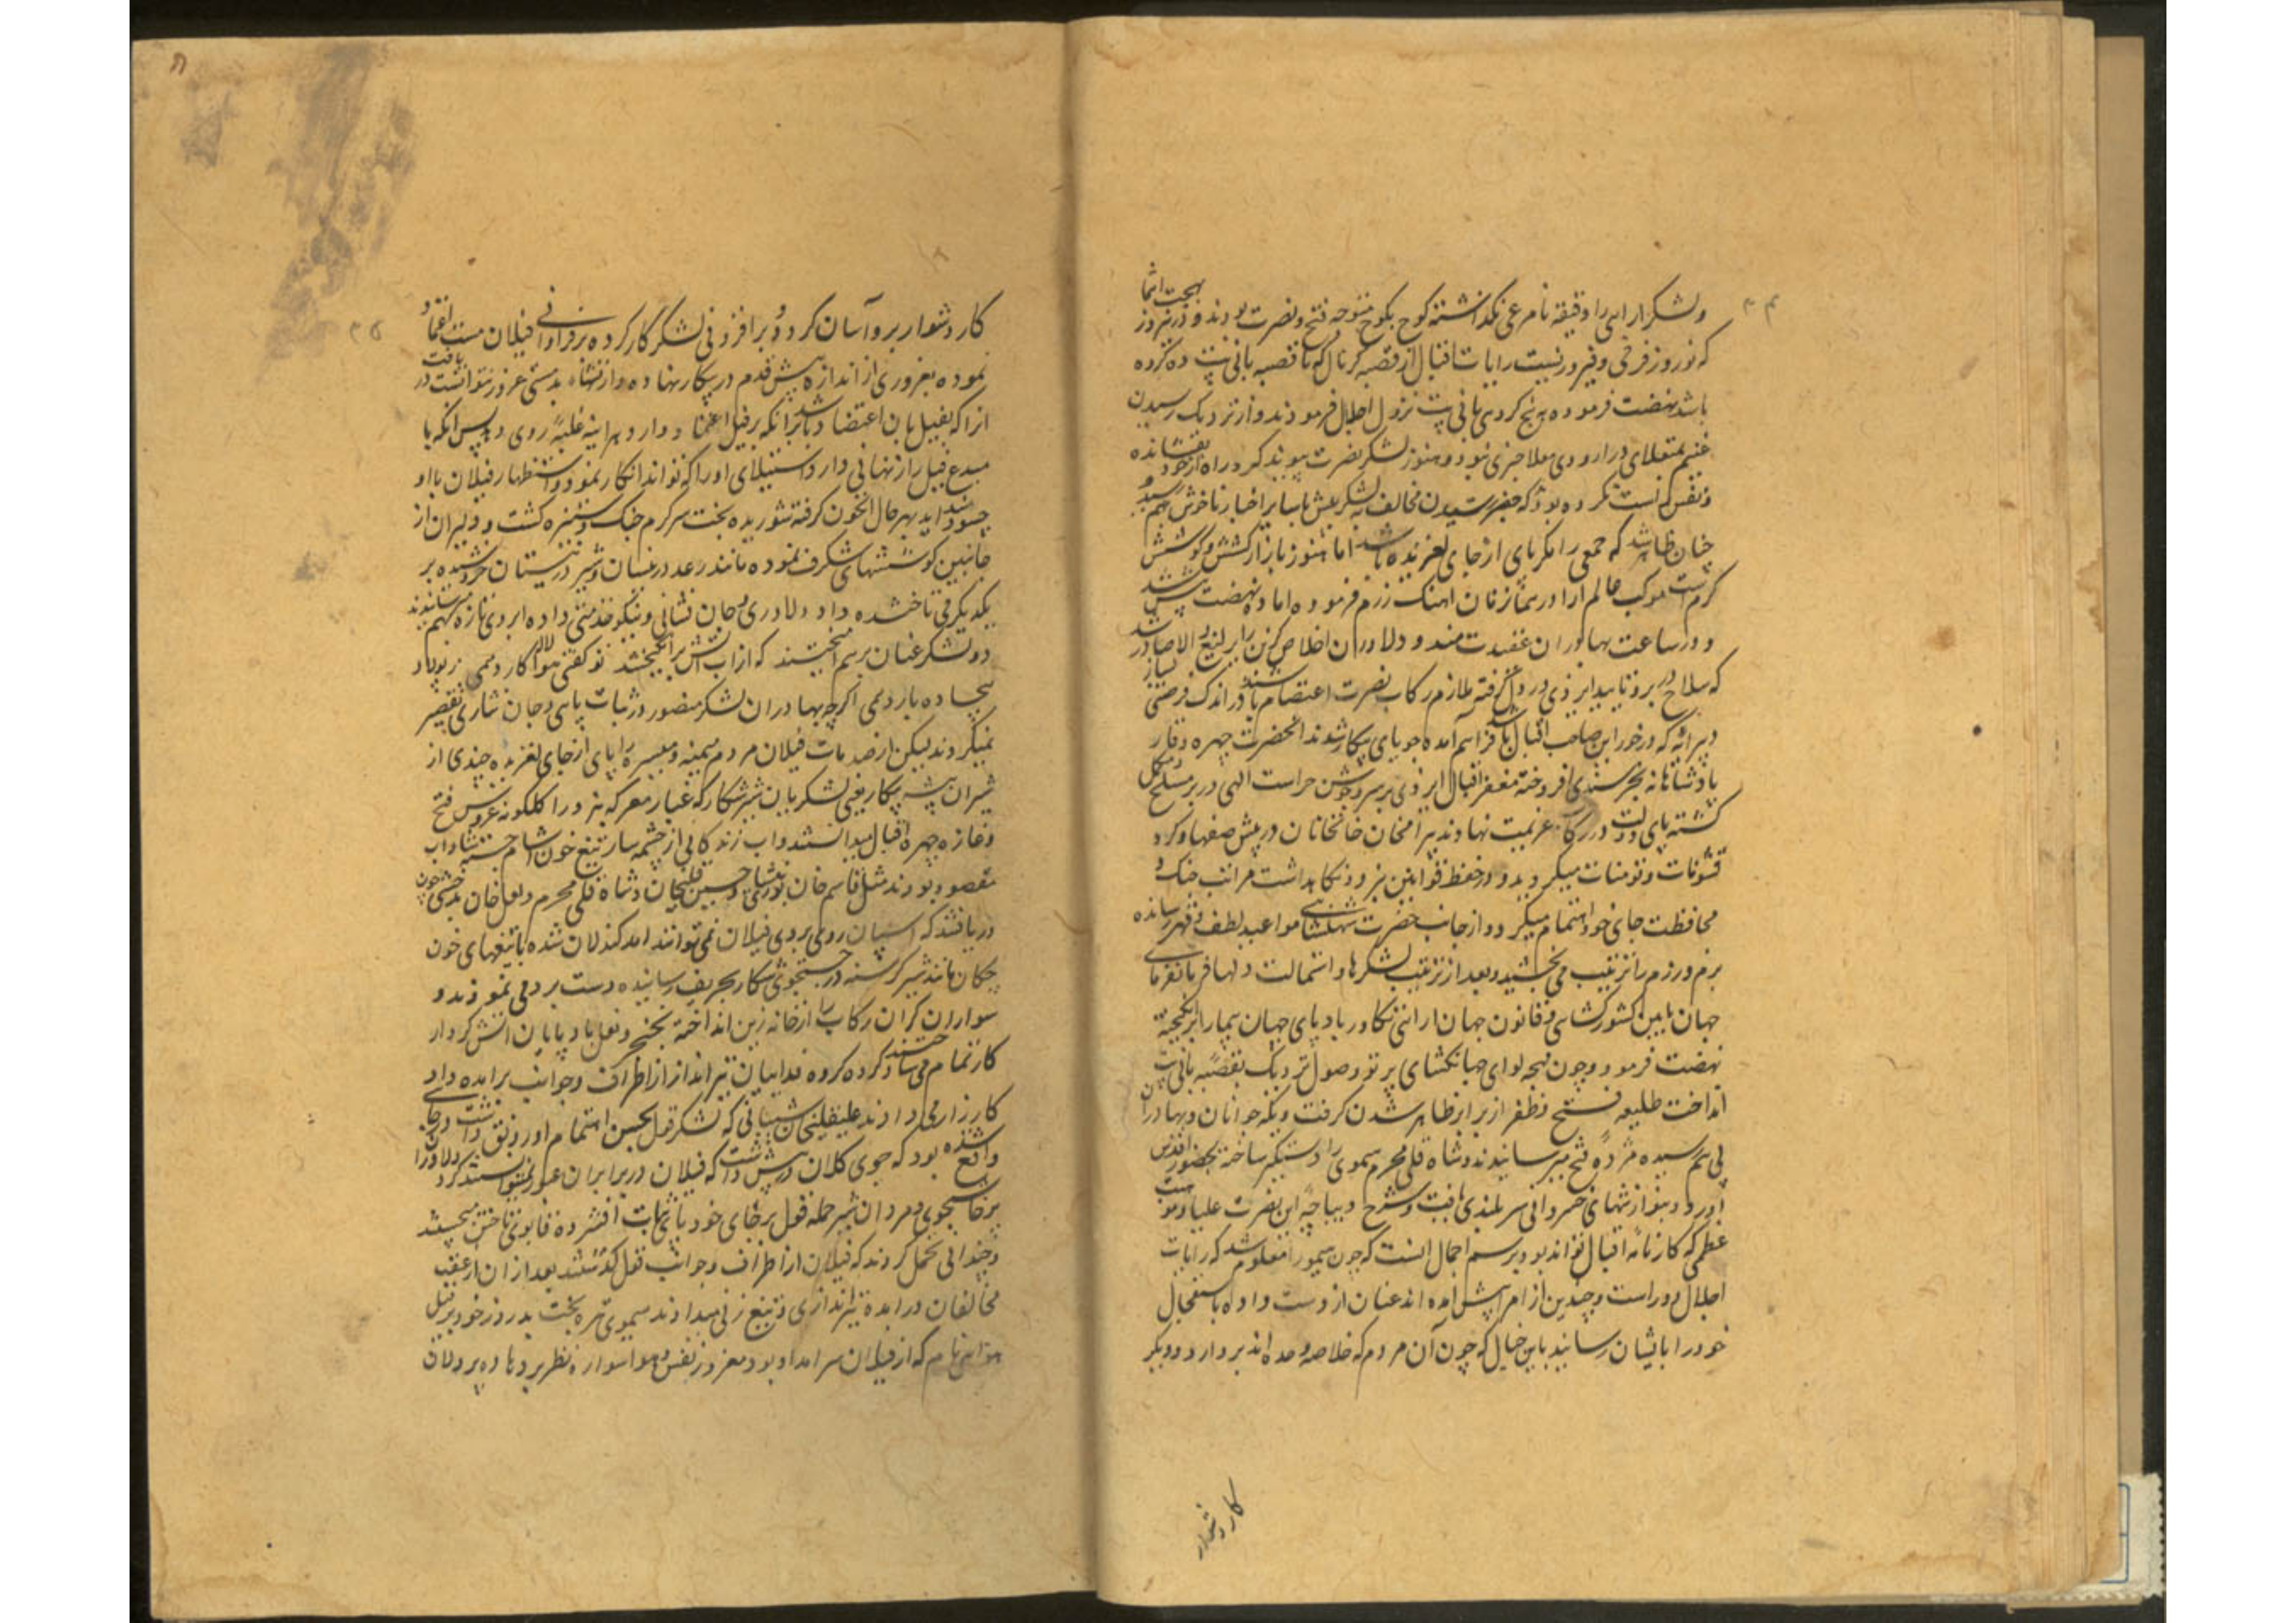 ۴۴
ولشکرارایی را دقیقه نامرعی نگذاشته کوچ بکوچ متوجه فتح ونصرت بودند و درین روز بهجت انتما
که نوروز فرخی وفیروزیست رایات اقبال از قصبه کرنال که تا قصبه پانی پت ده کروه
باشد نهضت فرموده به پنج کروهی پانی پت نزول اجلال فرمودند و از نزدیک رسیدن
غنیم بمنقلای در اردوی معلا خبری نبود و هنوز لشکر نصرت پیوند کرد راه از خود نیفشانده
ونفس راست نکرده بود که خبر رسیدن مخالف به لشکر پیش با سایر اخبار ناخوش بهم رسید و
چنان ظاهر شد که جمعی را مکر پای از جای لغزیده باشد اما هنوز بازار کشش و کوشش
کرم است موکب عالم ارا در همان زمان اهنک رزم فرموده اماده نهضت پیش شدند
و در ساعت بهادران عقیدت مند و دلاوران اخلاص کزین را یرلیغ والا صادر شد
که سلاح در بر و تایید ایزدی در دل کرفته ملازم رکاب نصرت اعتصام باشند در اندک فرصتی لشکر
دیرانه که درخور این صاحب اقبال باشد فراهم آمده جویای پیکار شدند انحضرت چهره وقار
پادشاهانه بخرسندی افروخته مغفر اقبال ایزدی بر سر و جوشن حراست الهی در بر مسلح و مکمل
کشته پای دولت در رکاب عزیمت نهادند بیرامخان خانخانان در پیش صفها و کرد
قشونات و تومنات میکردید و در حفظ قوانین نبرد و نکاهداشت مراتب جنک و
محافظت جای خود اهتمام میکرد و از جانب حضرت شهنشاهی مواعید لطف و قهر رسانده
بزم و رزم را ترتیب می بخشید و بعد از ترتیب لشکرها و استمالت دلها فرمانفرمای
جهان بایین کشورکشایی و قانون جهان ارایی تکاور باد پای جهان پیما را برانکیخته
نهضت فرمود و چون لوای جهانکشای پرتو وصول نزدیک بقصبه پانی پت
انداخت طلیعه فتح وظفر از برابر ظاهر شدن کرفت و یکه جوانان و بهادران
پی هم رسیده مژده فتح میرسانیدند و شاه قلی محرم هیموی را دستکیر ساخته بحضور اقدس
آورد و بنوازشهای خسروانی سربلندی یافت و شرح دیباچه این نصرت علیا و موهبت
عظمی که کارنامه اقبال تواند بود برسم اجمال انست که چون هیمو را معلوم شد که رایات
اجلال دور است و چندین از امرا پیش امده اند عنان از دست داده باستعجال
خود را بایشان رسانید باین خیال که چون آن مردم که خلاصه و عمده اند بردارد و دیکر
کار دشوار
۴۵
کار دشوار برو آسان کردد و بر افزونی لشکر کار کرده بر فراوانی فیلان مست اعتماد
نموده بغروری از اندازه بیش قدم در پیکار نهاده و از نشاه بدمستی غرور نتوانست دریافت
انرا که بفیل بان اعتضاد باشد برانکه بر فیل اعتماد دارد هراینه غلبه روی دهد پس انکه با
مبدع فیل راز نهانی دارد استیلای او را که تواند انکار نمود و استظهار فیلان با او
چه سود نماید بهر حال انخون کرفته شوریده بخت سرکرم جنک و ستیزه کشت و دلیران از
جانبین کوششهای شکرف نموده مانند رعد در نیسان و شیر در نیستان خروشیده بر
یکدیکر می تاختند و داد دلاوری و جان فشانی و نیکو خدمتی داده ابروی تازه بهم میرسانیدند
دو لشکر عنان برهم انجیختند که از اب آتش برانکیختند تو کفتی هوا لاله کارد همی ز پولاد
بیجاده بارد همی اکرچه بهادران لشکر منصور در ثبات پای و جان نثاری تقصیر
نمیکردند لیکن از صدمات فیلان مردم میمنه و میسره را پای از جای لغزیده چندی از
شیران بیشه پیکار یعنی لشکریان شیر شکار که غبار معرکه نبرد را کلکونه عروس فتح
و غازه چهره اقبال میدانستند و اب زندکانی از چشمه سار تیغ خون اشام جسته شاداب
مقصود بودند مثل قاسم خان نیشاپوری و حسین قلیخان و شاه قلی محرم و لعل خان بدخشی چون
دریافتند که اسپیان روی بروی فیلان نمی توانند امد کندلان شده با تیغهای خون
چکان مانند شیر کرسنه در جستجوی شکار بحریف رسانیده دست بردی نمودند و
سواران کران رکاب را از خانه زین انداخته بخنجر و نعل باد پایان اتش کردار
کار تمام می ساختند و کروه کروه فداییان تیرانداز از اطراف و جوانب برامده داد
کارزار می دادند علیقلیخان شیبانی که لشکر قول بحسن اهتمام او رونق داشت و در جای
واقع شده بود که جوی کلان در پیش داشت که فیلان در برابر ان عبور نمیتوانستند کرد دلاوران
پرخاشجوی و مردان شیر حمله قول بر جای خود پای ثبات افشرده قابوی تاختن میجستند
و چندانی تحمل کردند که فیلان از اطراف و جوانب قول کذشتند بعد از ان از عقب
مخالفان درامده تیراندازی و تیغ زنی میدادند هیموی تیره بخت بدروز خود بر فیل
هوایی نام که از فیلان سرامد او بود مغرور نفس و هوا سوار نظر بر دها ده بر دلان